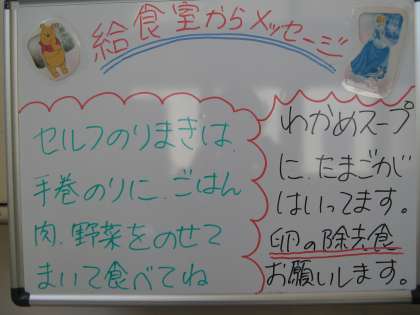 給食室からメッセージ
セルフのりまきは、
手巻のりに、ごはん
肉、野菜をのせて
まいて食べてね
わかめスープ
に、たまごが
はいってます。
卵の除去食
お願いします。